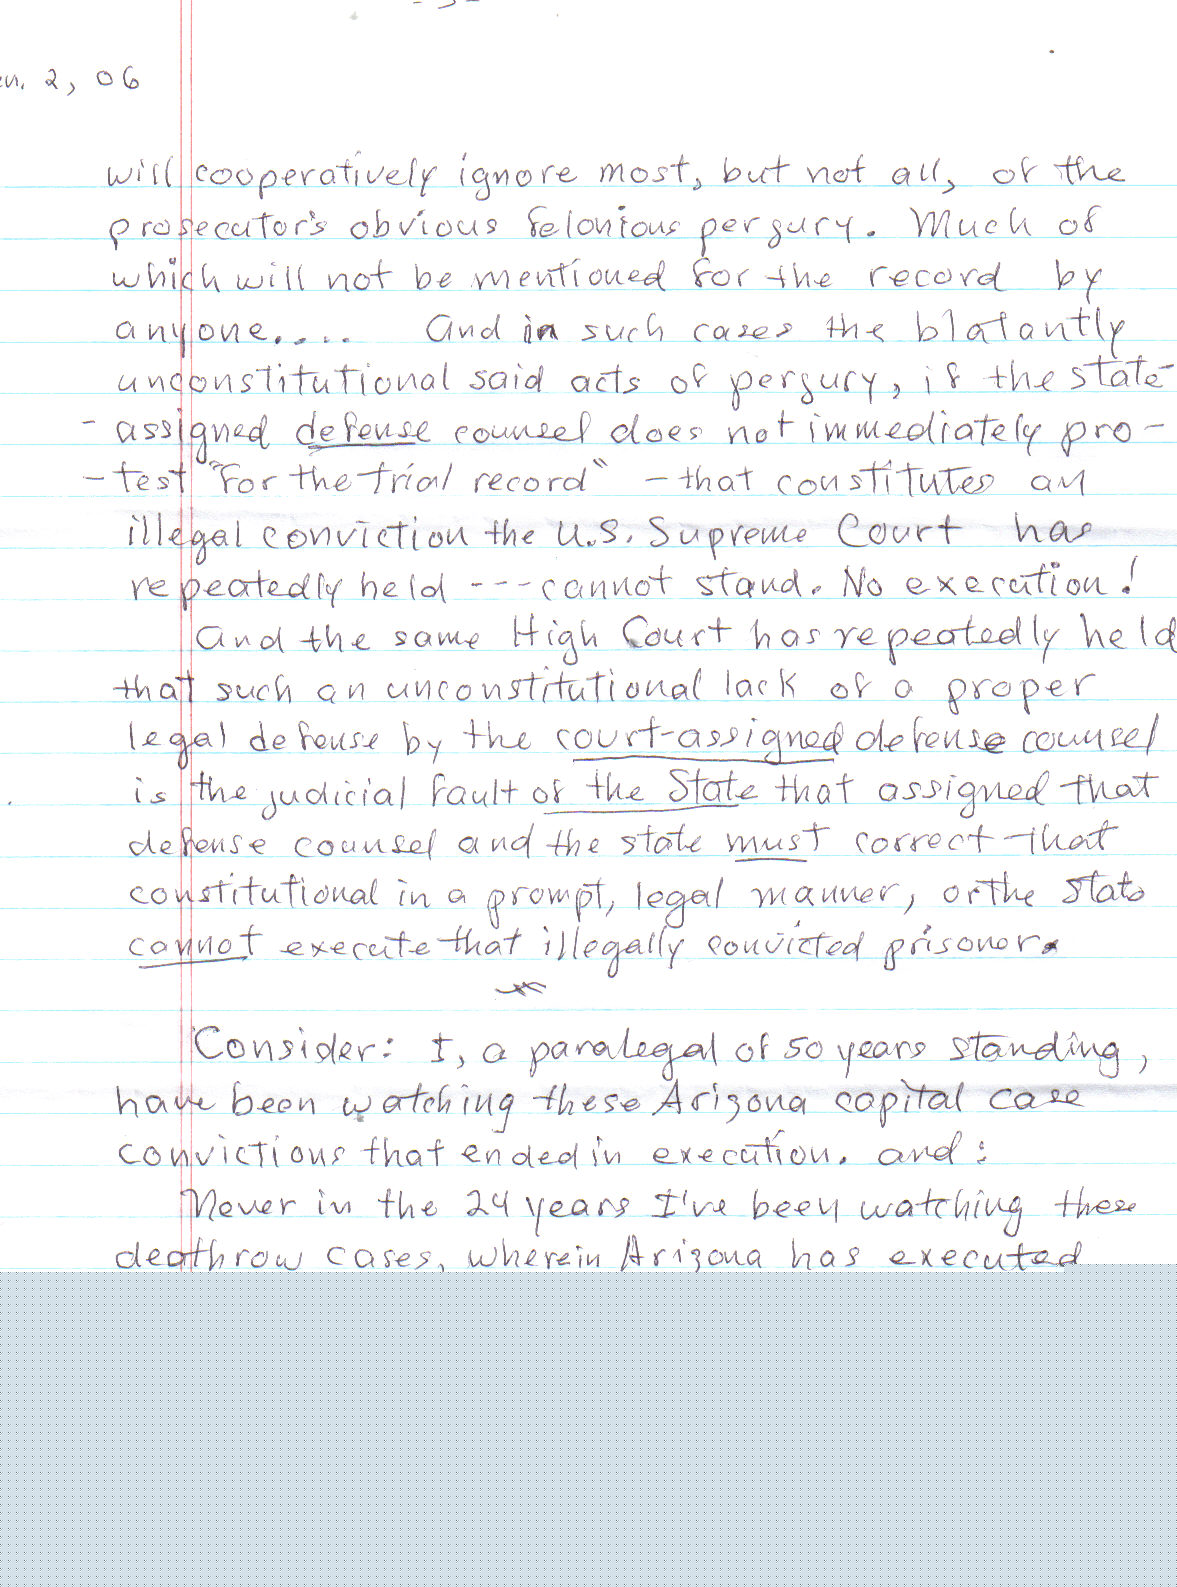 - 3 -
en. 2, 06
will cooperatively ignore most, but not all, of the
prosecutor's obvious felonious pergury. Much of
which will not be mentioned for the record by
anyone..... And in such cases the blatantly
unconstitutional said acts of pergury, if the state-
- assigned defense counsel does not immediately pro-
- test "for the trial record" - that constitutes an
illegal conviction the U.S. Supreme Court has
repeatedly held --- cannot stand. No execution!
And the same High Court has repeatedly held
that such an unconstitutional lack of a proper
legal defense by the court-assigned defense counsel
is the judicial fault of the State that assigned that
defense counsel and the state must correct that
constitutional in a prompt, legal manner, or the State
cannot execute that illegally convicted prisoner.
Consider: I, a paralegal of 50 years standing,
have been watching these Arizona capital case
convictions that ended in execution. and:
Never in the 24 years I've been watching these
deathrow cases, wherein Arizona has executed